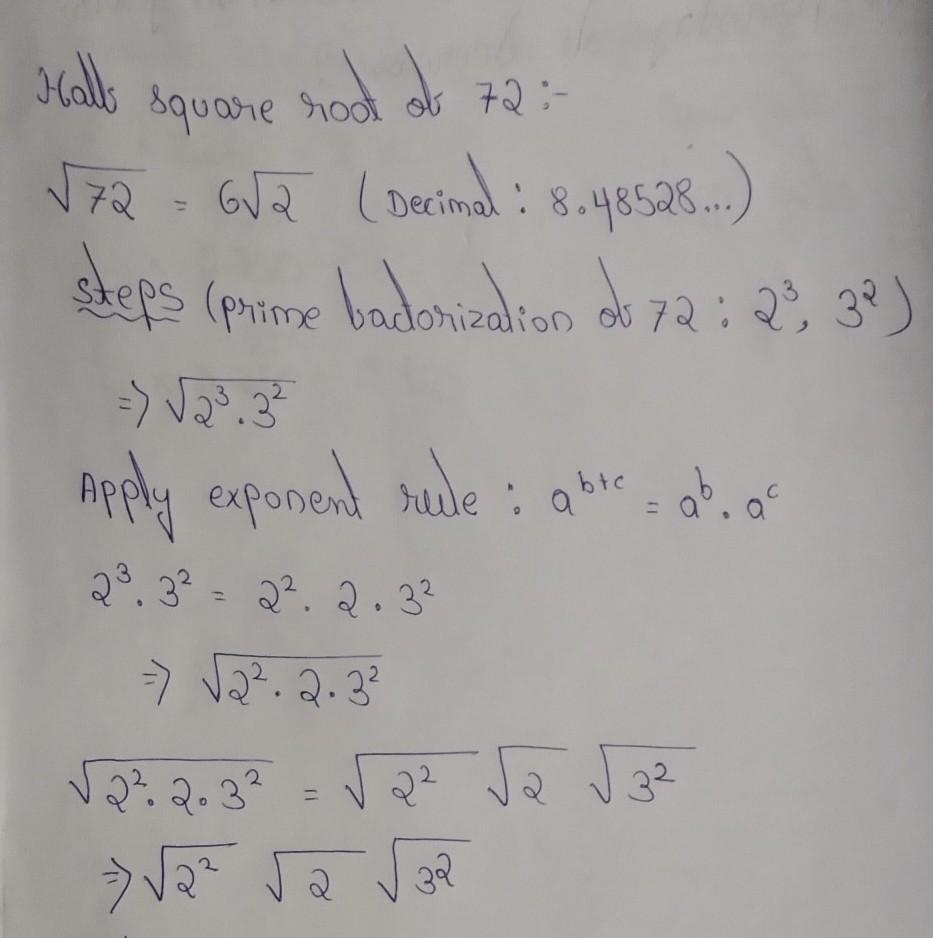 Half square root of 72 :-
√72 = 6√2 (Decimal : 8.48528...)
steps (prime factorization of 72 : 2³, 3²)
⇒ √2³.3²
Apply exponent rule : a^(b+c) = a^b . a^c
2³. 3² = 2². 2 . 3²
⇒ √2². 2. 3²
√2². 2. 3² = √2² √2 √3²
⇒ √2² √2 √3²